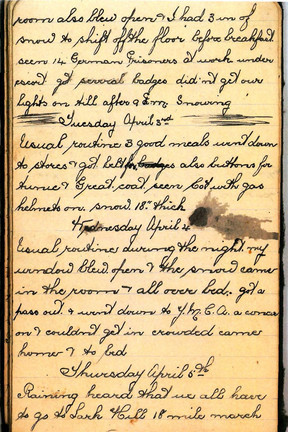 room also blew open & I had 3 in of
snow to shift off the floor before breakfast
seen 14 German Prisoners at work under
escort got several badges did'nt get our
lights on till after 9 P.m. Snowing
Tuesday April 3rd
Usual routine 3 good meals went down
to stores & got belt for badges also buttons for
tunic & Great coat, seen Cot with gas
helmets on. snow 18" thick
Wednesday April 4
Usual routine during the night my
window blew open & the snow came
in the room & all over bed, got a
pass out. & went down to Y.M.C.A. a concer
on & couldn't get in crowded came
home & to bed
Thursday April 5th
Raining heard that we all have
to go to Lark Hill 18 mile march